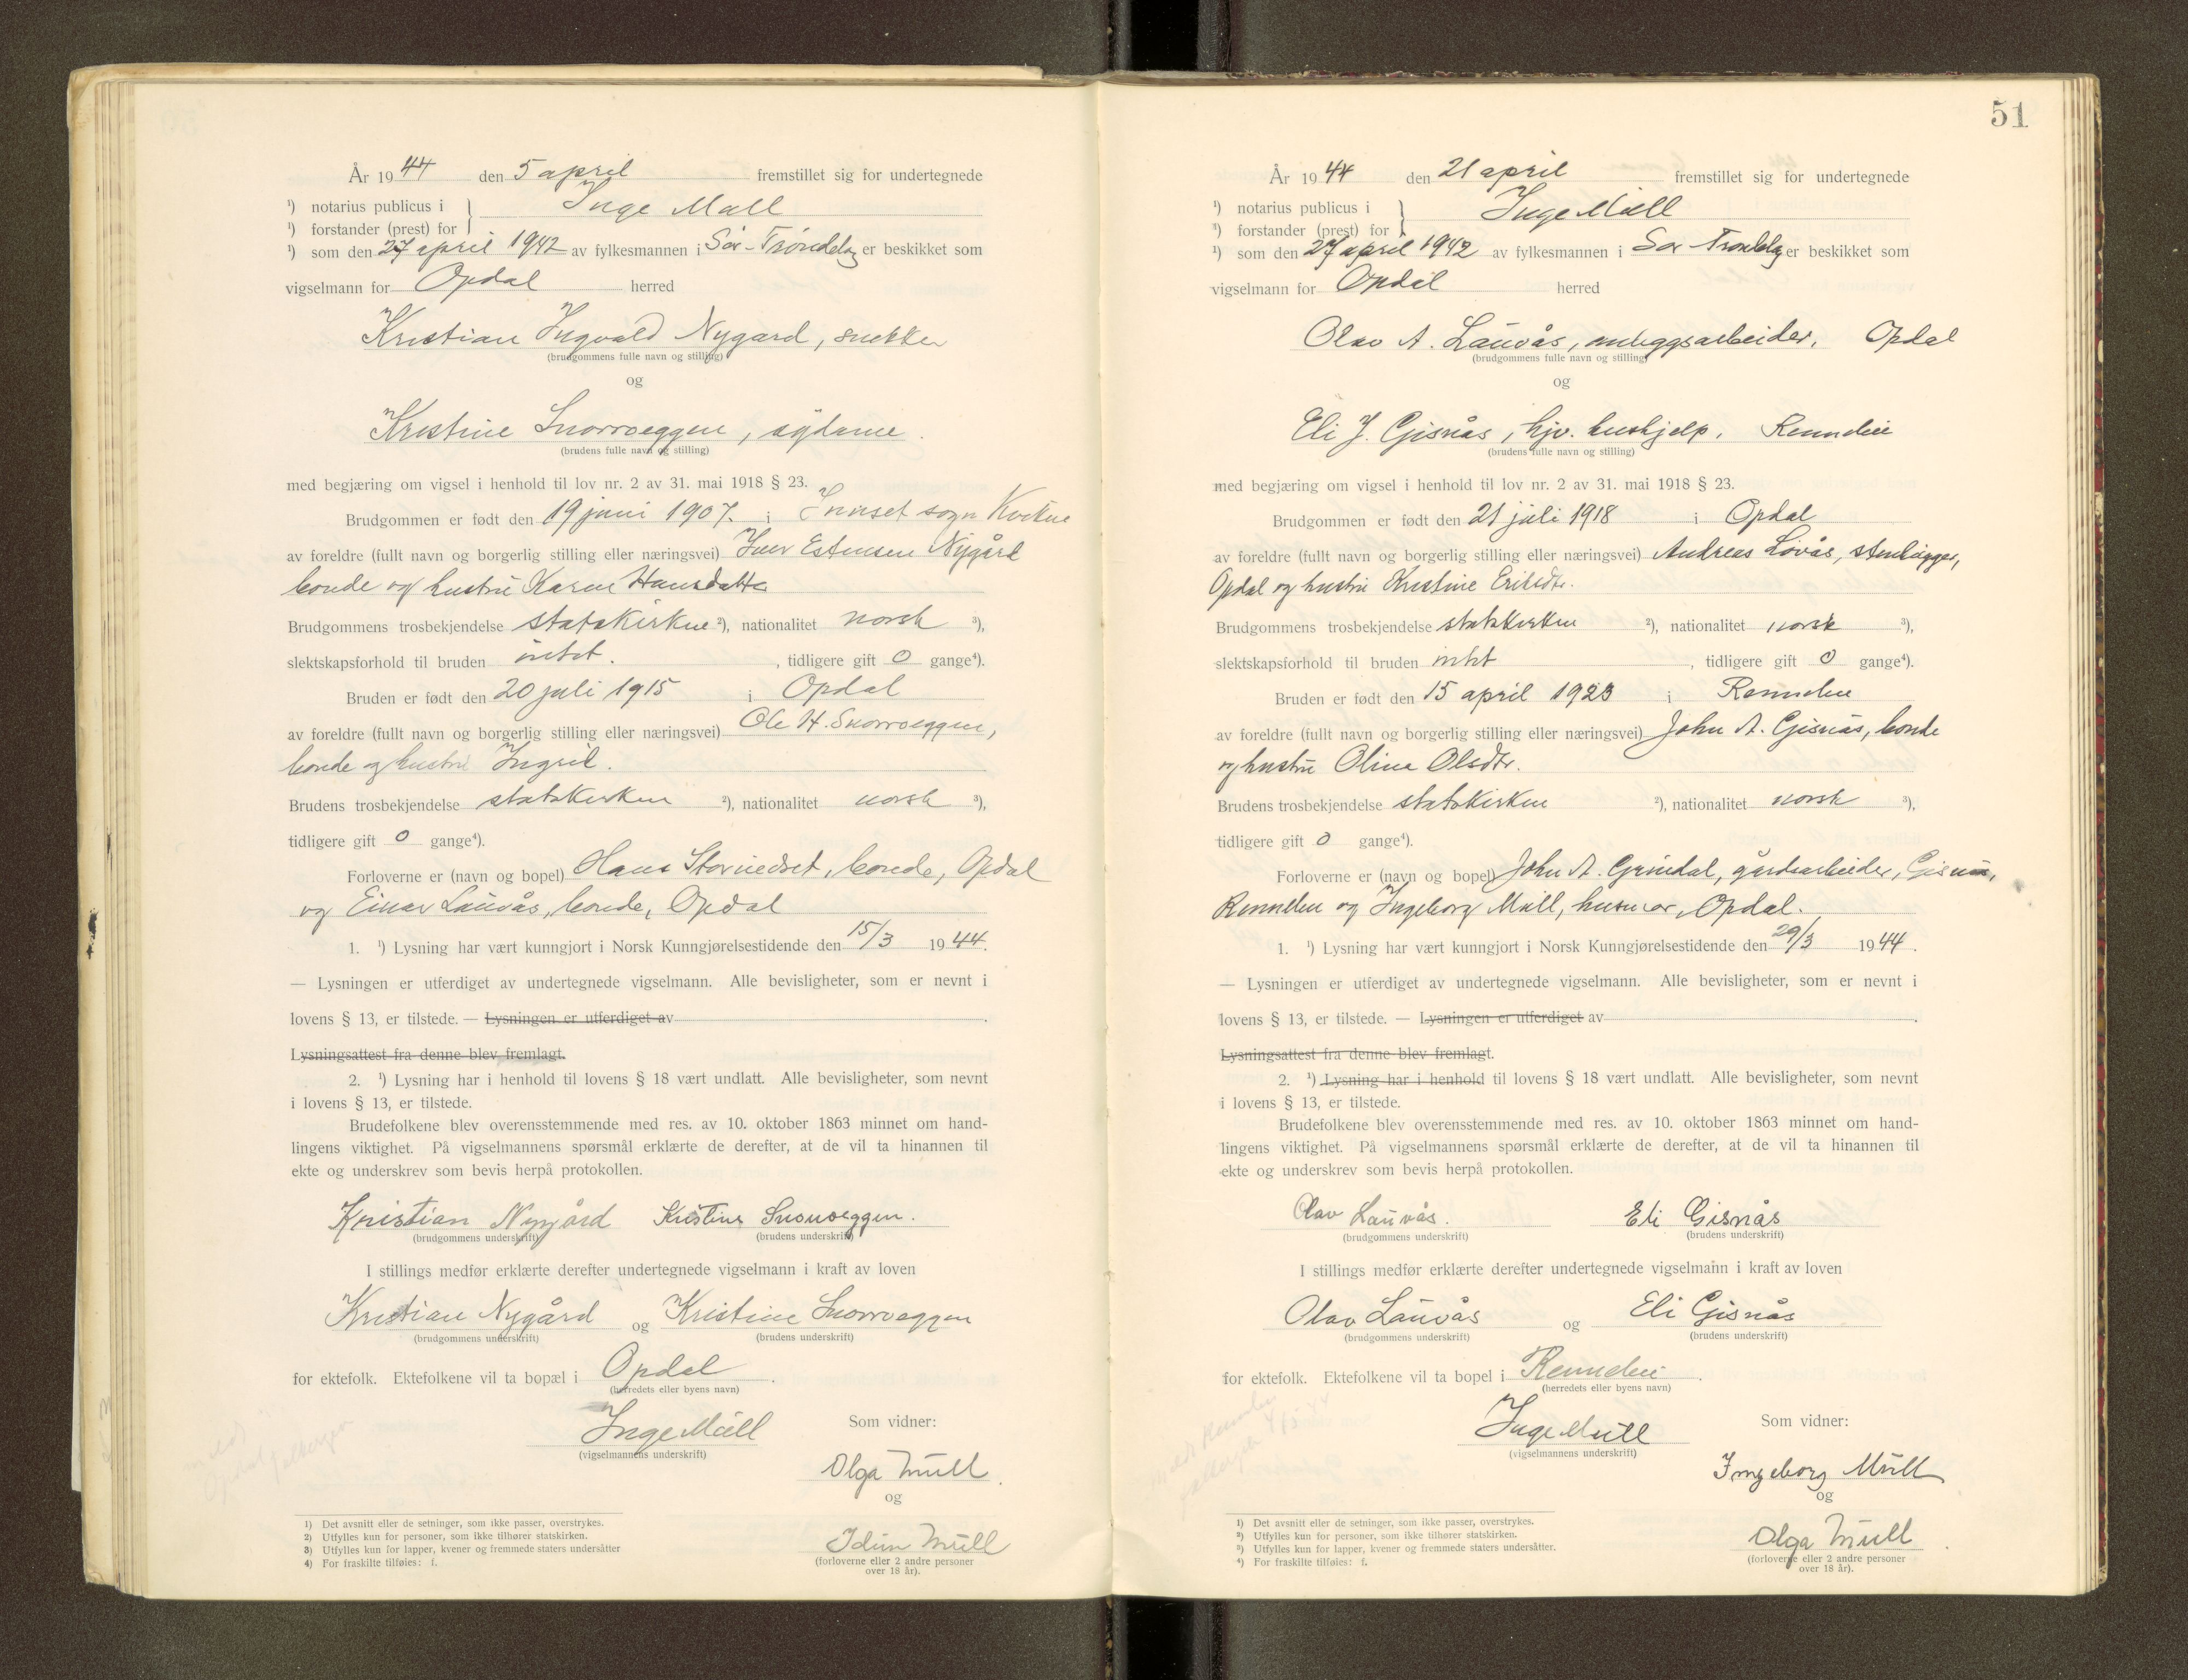 År 1944 den 5 april fremstillet sig for undertegnede
¹) notarius publicus i } Inge Mull
¹) forstander (prest) for
¹) som den 27 april 1942 av fylkesmannen i Sør-Trøndelag er beskikket som
vigselmann for Opdal herred
Kristian Ingvald Nygard, snekker
(brudgommens fulle navn og stilling)
og
Kristine Snorroeggen, sydame.
(brudens fulle navn og stilling)
med begjæring om vigsel i henhold til lov nr. 2 av 31. mai 1918 § 23.
Brudgommen er født den 19 juni 1907. i Innset sogn Kvikne
av foreldre (fullt navn og borgerlig stilling eller næringsvei) Iver Estensen Nygård
bonde og hustru Karen Hansdatter
Brudgommens trosbekjendelse statskirken ²), nationalitet norsk ³),
slektskapsforhold til bruden intet. , tidligere gift 0 gange⁴).
Bruden er født den 20 juli 1915 i Opdal
av foreldre (fullt navn og borgerlig stilling eller næringsvei) Ole H. Snorroeggen,
bonde og hustru Ingril.
Brudens trosbekjendelse statskirken ²), nationalitet norsk ³),
tidligere gift 0 gange⁴).
Forloverne er (navn og bopel) Hans Stornedset, bonde, Opdal
og Einar Lauvås, bonde, Opdal
1. ¹) Lysning har vært kunngjort i Norsk Kunngjørelsestidende den 15/3 1944.
— Lysningen er utferdiget av undertegnede vigselmann. Alle bevisligheter, som er nevnt i
lovens § 13, er tilstede. — Lysningen er utferdiget av .
Lysningsattest fra denne blev fremlagt.
2. ¹) Lysning har i henhold til lovens § 18 vært undlatt. Alle bevisligheter, som nevnt
i lovens § 13, er tilstede.
Brudefolkene blev overensstemmende med res. av 10. oktober 1863 minnet om hand-
lingens viktighet. På vigselmannens spørsmål erklærte de derefter, at de vil ta hinannen til
ekte og underskrev som bevis herpå protokollen.
Kristian Nygård Kristine Snorroeggen.
(brudgommens underskrift) (brudens underskrift)
I stillings medfør erklærte derefter undertegnede vigselmann i kraft av loven
Kristian Nygård og Kristine Snorroeggen
(brudgommens underskrift) (brudens underskrift)
for ektefolk. Ektefolkene vil ta bopæl i Opdal .
(herredets eller byens navn)
Inge Mull Som vidner:
(vigselmannens underskrift)
Olga Mull.
og
Idun Mull
(forloverne eller 2 andre personer
over 18 år).
1) Det avsnitt eller de setninger, som ikke passer, overstrykes.
2) Utfylles kun for personer, som ikke tilhører statskirken.
3) Utfylles kun for lapper, kvener og fremmede staters undersåtter
4) For fraskilte tilføies: f.
51
År 1944 den 21 april fremstillet sig for undertegnede
¹) notarius publicus i } Inge Mull
¹) forstander (prest) for
¹) som den 27 april 1942 av fylkesmannen i Sør-Trøndelag er beskikket som
vigselmann for Opdal herred
Olav A. Lauvås, anleggsarbeider, Opdal
(brudgommens fulle navn og stilling)
og
Eli J. Gisnås, hjv. hushjelp, Rennebu
(brudens fulle navn og stilling)
med begjæring om vigsel i henhold til lov nr. 2 av 31. mai 1918 § 23.
Brudgommen er født den 21 juli 1918 i Opdal
av foreldre (fullt navn og borgerlig stilling eller næringsvei) Andreas Lovås, stenhugger,
Opdal og hustru Kristine Eriksdtr.
Brudgommens trosbekjendelse statskirken ²), nationalitet norsk ³),
slektskapsforhold til bruden intet , tidligere gift 0 gange⁴).
Bruden er født den 15 april 1923 i Rennebu
av foreldre (fullt navn og borgerlig stilling eller næringsvei) John A. Gisnås, bonde
og hustru Olina Olsdtr.
Brudens trosbekjendelse statskirken ²), nationalitet norsk ³),
tidligere gift 0 gange⁴).
Forloverne er (navn og bopel) John A. Grindal, gårdsarbeider, Gisnås,
Rennebu og Ingeborg Mull, husmor, Opdal.
1. ¹) Lysning har vært kunngjort i Norsk Kunngjørelsestidende den 29/3 1944.
— Lysningen er utferdiget av undertegnede vigselmann. Alle bevisligheter, som er nevnt i
lovens § 13, er tilstede. — Lysningen er utferdiget av .
Lysningsattest fra denne blev fremlagt.
2. ¹) Lysning har i henhold til lovens § 18 vært undlatt. Alle bevisligheter, som nevnt
i lovens § 13, er tilstede.
Brudefolkene blev overensstemmende med res. av 10. oktober 1863 minnet om hand-
lingens viktighet. På vigselmannens spørsmål erklærte de derefter, at de vil ta hinannen til
ekte og underskrev som bevis herpå protokollen.
Olav Lauvås. Eli Gisnås
(brudgommens underskrift) (brudens underskrift)
I stillings medfør erklærte derefter undertegnede vigselmann i kraft av loven
Olav Lauvås og Eli Gisnås
(brudgommens underskrift) (brudens underskrift)
for ektefolk. Ektefolkene vil ta bopel i Rennebu .
(herredets eller byens navn)
Inge Mull Som vidner:
(vigselmannens underskrift)
Ingeborg Mull
og
Olga Mull
(forloverne eller 2 andre personer
over 18 år).
1) Det avsnitt eller de setninger, som ikke passer, overstrykes.
2) Utfylles kun for personer, som ikke tilhører statskirken.
3) Utfylles kun for lapper, kvener og fremmede staters undersåtter.
4) For fraskilte tilføies: f.